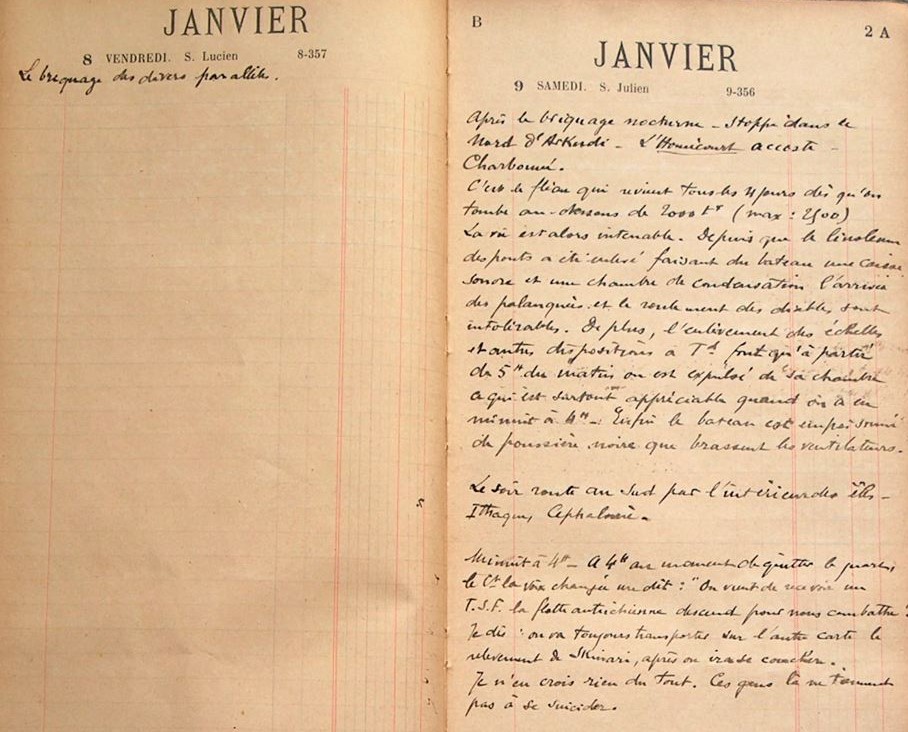 JANVIER
8 VENDREDI. S. Lucien 8-357
Le briquage des divers parallèles.
B
2 A
JANVIER
9 SAMEDI. S. Julien 9-356
Après le briquage nocturne – Stoppé dans le
Nord d'Arkudi – L'Homécourt accoste –
Charbonné.
C'est le fléau qui revient tous les 4 jours dès qu'on
tombe au-dessous de 2000 tx (max : 2500)
La vie est alors intenable. Depuis que le linoleum
des ponts a été enlevé faisant du bateau une caisse
sonore et une chambre de condensation l'arrivée
des palanquées et le roulement des diables sont
intolérables. De plus, l'enlèvement des échelles
et autres dispositions à Td font qu'à partir
de 5h du matin on est expulsé de sa chambre
ce qui est surtout appréciable quand on a eu
minuit à 4h – Enfin le bateau est empoisonné
de poussière noire que brassent les ventilateurs.
Le soir route au Sud par l'intérieur des îles –
Ithaque, Céphalonie.
Minuit à 4h – A 4h au moment de quitter le quart,
le Ct la voix changée me dit : "On vient de recevoir un
T.S.F. la flotte autrichienne descend pour nous combattre"
Je dis : on va toujours transporter sur l'autre carte le
relèvement de Skinari, après on ira se coucher.
Je n'en crois rien du tout. Ces gens là ne tiennent
pas à se suicider.